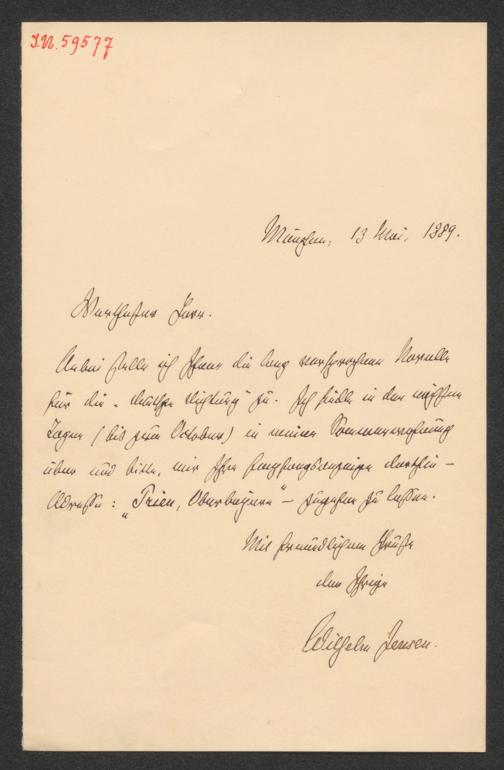 I.N. 59577
München, 13 Mai. 1889.
Werthester Herr.
Anbei stelle ich Ihnen die lang versprochene Novelle
für die „deutsche Dichtung" zu. Ich siedle in den nächsten
Tagen (bis zum October) in meine Sommerwohnung
über und bitte, mir Ihre Empfangsanzeige dorthin –
Adresse: „Prien, Oberbayern" – zugehen zu lassen.
Mit freundlichem Gruße
der Ihrige
Wilhelm Jensen.